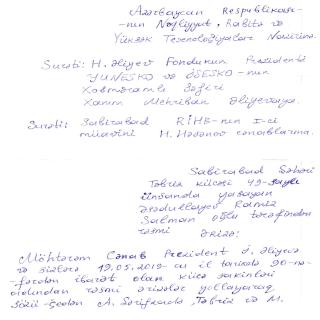 Azərbaycan Respublikası-
-nın Nəqliyyat, Rabitə və
Yüksək Texnologiyalar Nazirinə.
Surəti: H. Əliyev Fondunun Prezidenti
YUNESKO və İSESKO-nun
Xoşməramlı Səfiri
Xanım Mehriban Əliyevaya.
Surəti: Sabirabad RİHB-nın I-ci
müavini H. Həsənov cənablarına.
Sabirabad Şəhəri
Təbriz küçəsi 49-saylı
ünvanda yaşayan
Əsədullayev Ramiz
Salman oğlu tərəfindən
rəsmi ərizə:
Möhtərəm Cənab Prezident İ. Əliyevə
və sizlərə 19.05.2019-cu il tarixdə 90-nə-
-fərdən ibarət olan küçə sakinləri
adından rəsmi ərizələr yollayaraq
Sizi A. Şərifzadə, Təbriz və M.